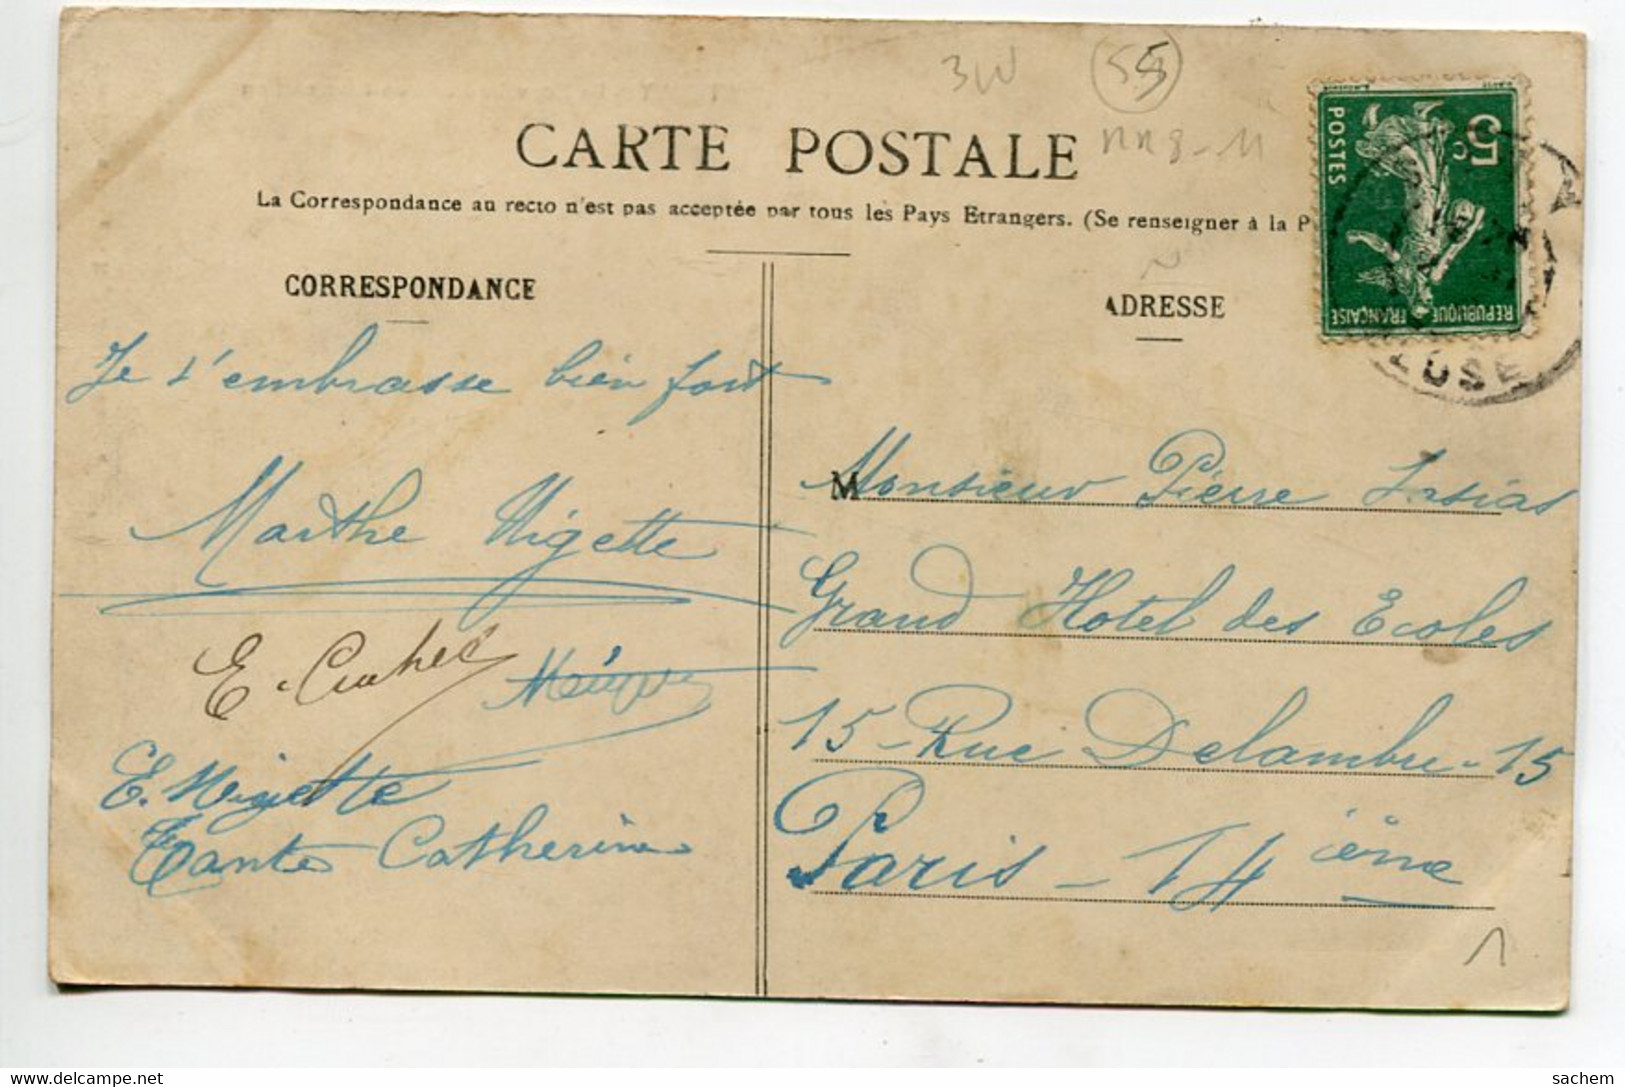 3W 55
CARTE POSTALE
nn8-11
La Correspondance au recto n'est pas acceptée par tous les Pays Etrangers. (Se renseigner à la P
5c
POSTES
REPUBLIQUE FRANÇAISE
EUSE
CORRESPONDANCE
Je t'embrasse bien fort
Marthe Migette
E.
E. Migette
Tante Catherine
ADRESSE
M Monsieur Pierre
Grand Hotel des Ecoles
15 - Rue Delambre - 15
Paris - 14 ième
sachem